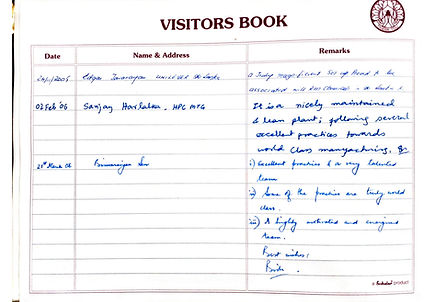 VISITORS BOOK
Date Name & Address Remarks
A truly magnificent set up. Proud to be
associated with
02 Feb '06 Sanjay Harlalka, HPC MTG It is a nicely maintained
& lean plant; following several
excellent practices towards
world class manufacturing,
i) Excellent practices & a very talented
team
ii) Some of the practices are truly world
class.
iii) A highly motivated and energised
team.
Best wishes!
a product